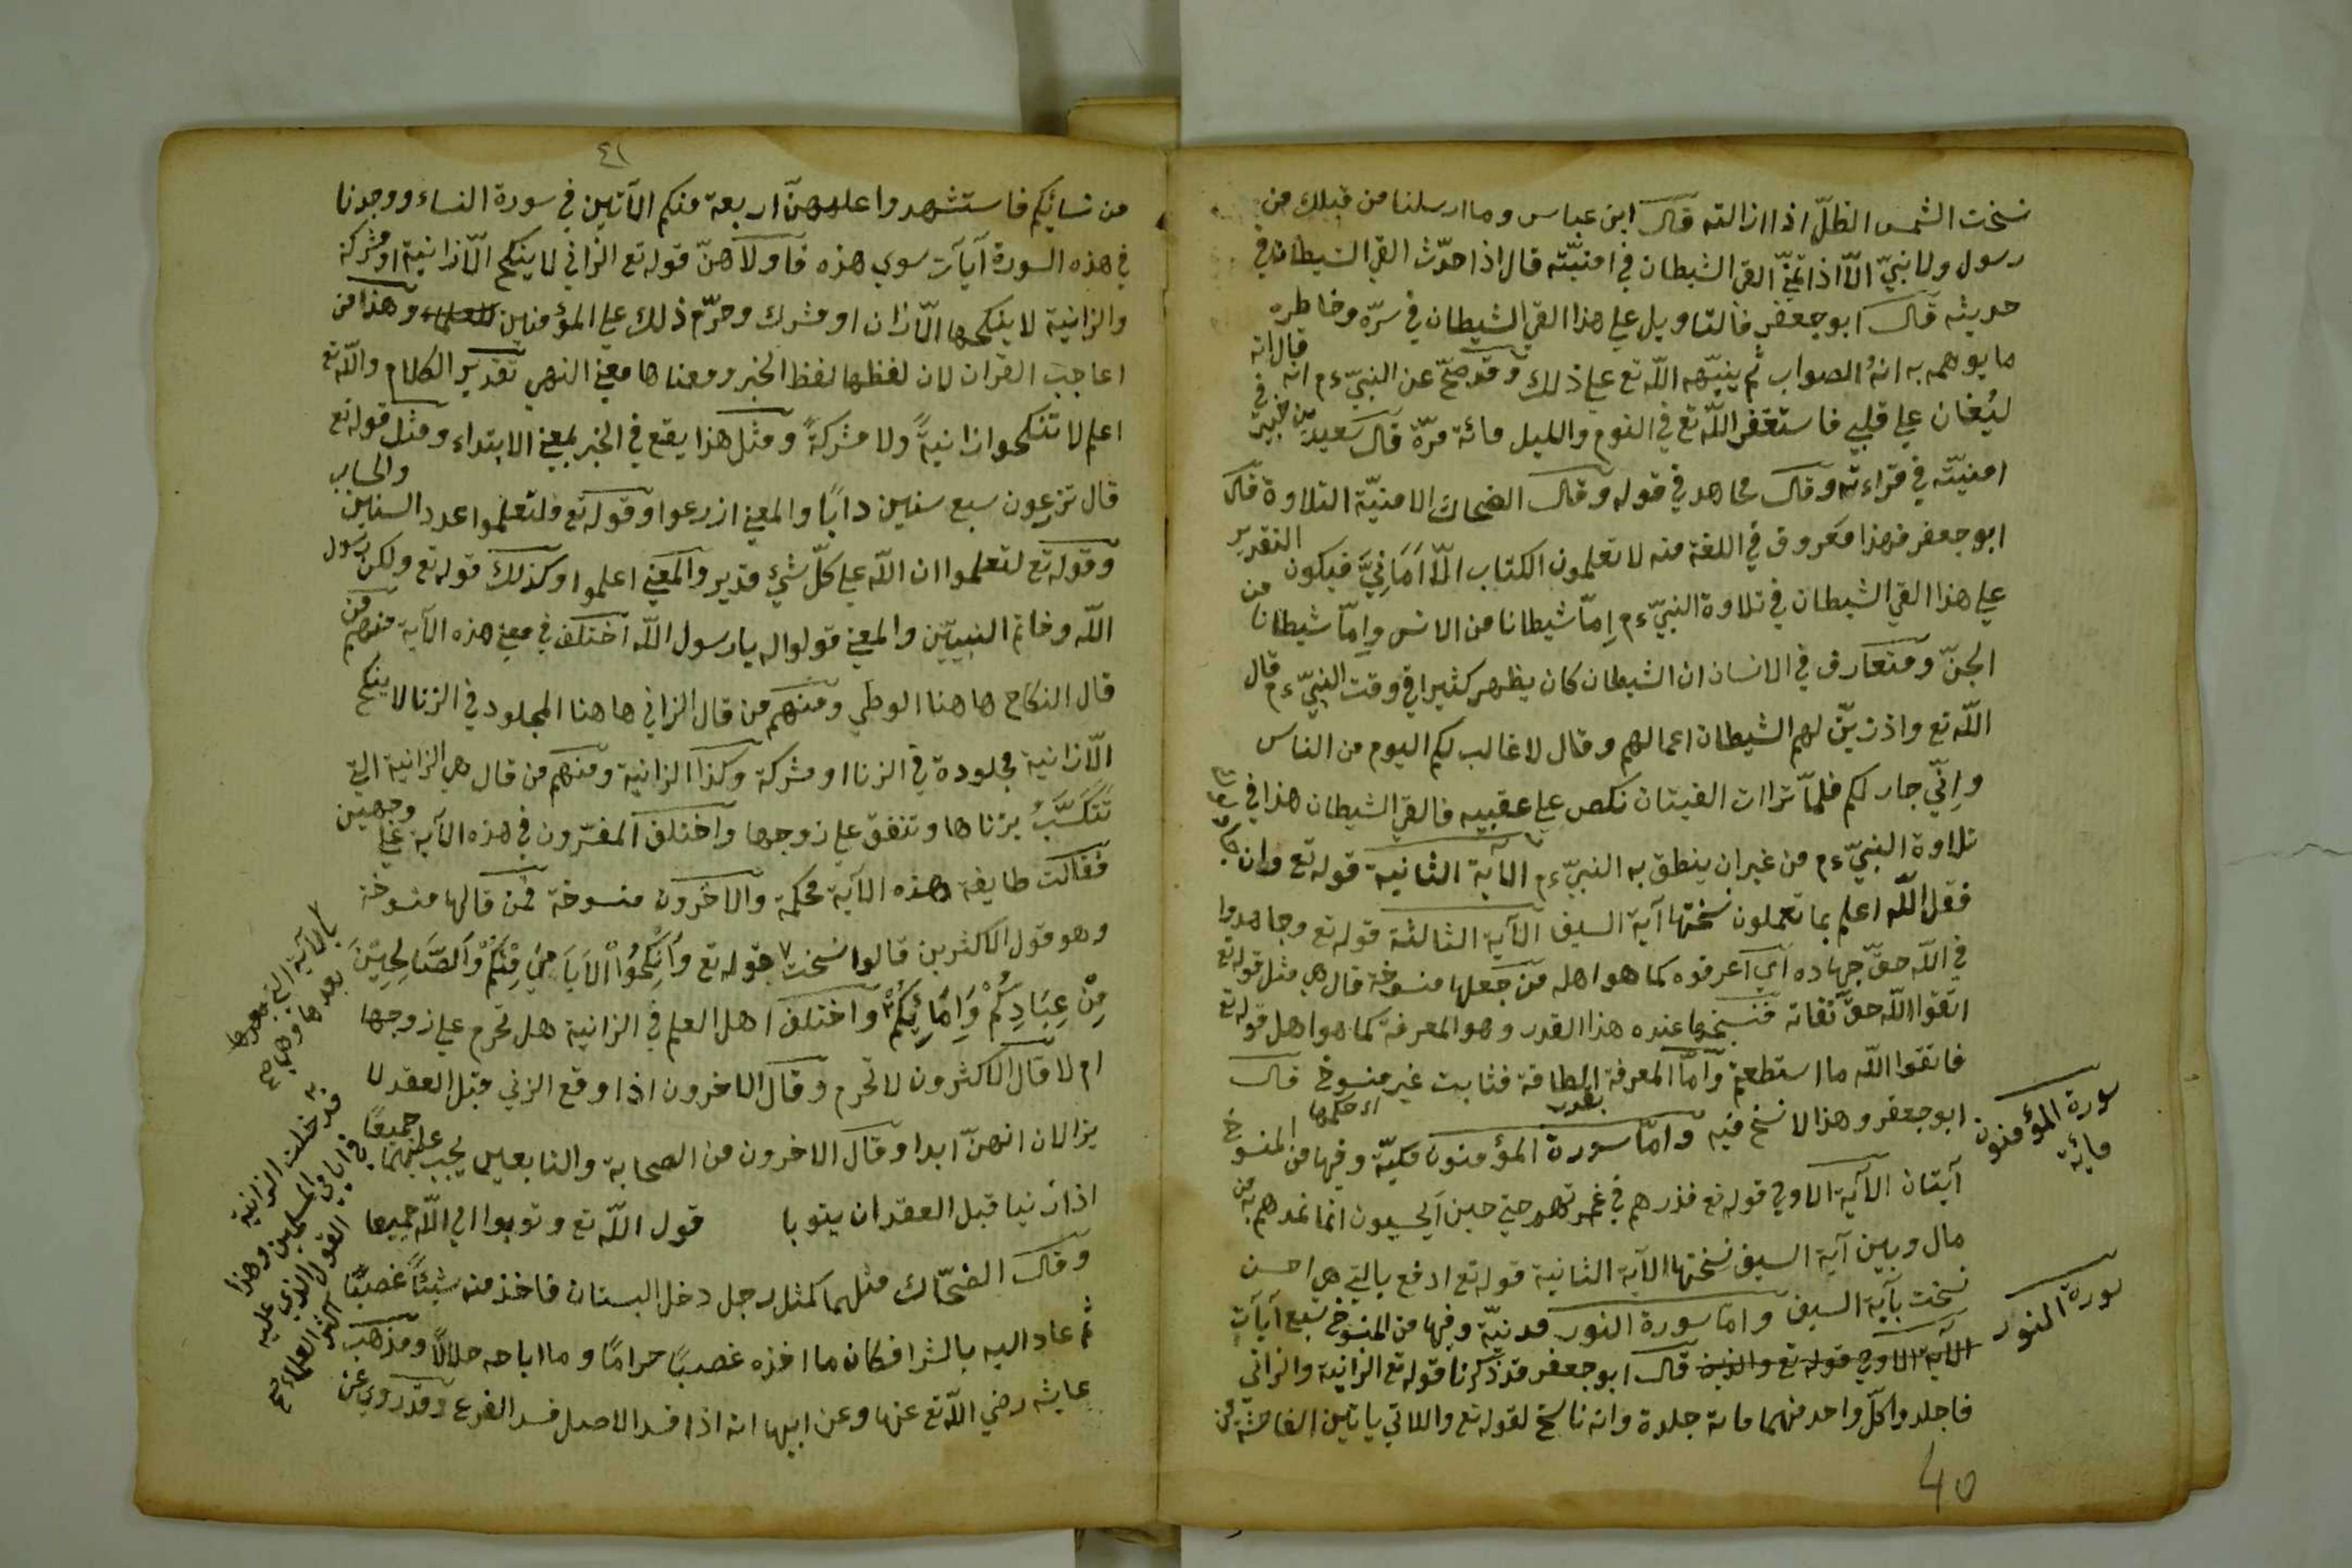 نسخت الشمس الظلّ اذا ازالته قال ابن عباس وما ارسلنا من قبلك من
رسول ولا نبيّ الّا اذا تمنّي القي الشيطان في امنيّته قال اذا حدّث القي الشيطان في
حديثه قال ابو جعفر فالتاويل علي هذا القي الشيطان في سرّه وخاطره
ما يوهمه به انه الصواب ثم ينبّهه اللّه تع علي ذلك وقد صحّ عن النبيّ ءم انه قال انه
ليُغان علي قلبي فاستغفر اللّه تع في اليوم والليل مائة مرّة قال سعيد بن جبير في
امنيّته في قراءته وقال مجاهد في قوله وقال الضحاك الامنيّة التلاوة قال
ابو جعفر فهذا معروف في اللغة منه لا تعلمون الكتاب الّا اَمَانِيَّ فيكون التقدير
علي هذا القي الشيطان في تلاوة النبيّ ءم اِمّا شيطانا من الانس واِمّا شيطانا من
الجنّ ومتعارف في الانسان ان الشيطان كان يظهر كثيرا في وقت النبيّ ءم قال
اللّه تع واذ زيّن لهم الشيطان اعمالهم وقال لا غالب لكم اليوم من الناس
واِنّي جار لكم فلمّا تراات الفئتان نكص علي عقبيه فالقي الشيطان هذا في
تلاوة النبيّ ءم من غير ان ينطق به النبيّ ءم الآية الثانية قوله تع وان
فقل اللّه اعلم بما تعملون نسختها آية السيف الآية الثالثة قوله تع وجاهدوا
في اللّه حقّ جهاده اي اعرفوه كما هو اهله من جعلها منسوخة قال هي مثل قوله تع
اتقوا اللّه حقّ تقاته فنسخها عنده هذا القدر وهو المعرفة كما هو اهل قوله تع
فاتقوا اللّه ما استطعتم وامّا المعرفة بقدر الطاقة فثابت غير منسوخ قال
ابو جعفر وهذا لا نسخ فيه وامّا سورة المؤمنون مكيّة وفيها من المنسوخ
اي حكمها
آيتان الآية الاولي قوله تع فذرهم في غمرتهم حتي حين ايحسبون انما نمدهم به من
مال وبنين آية السيف نسختها الآية الثانية قوله تع ادفع بالتي هي احسن
نسخت بآية السيف وامّا سورة النور مدنيّة وفيها من المنسوخ سبع آيات
الآية الاولي قوله تع والذين قال ابو جعفر قد ذكرنا قوله تع الزانية والزاني
فاجلدوا كلّ واحد منهما مائة جلدة وانه ناسخ لقوله تع واللاتي ياتين الفاحشة من
سورة المؤمنون
مائة
سورة النور
40
٤١
من نسائكم فاستشهدوا عليهنّ اربعة منكم الآتين في سورة النساء ووجدنا
في هذه السورة آيات سوي هذه فاولاهنّ قوله تع الزاني لا ينكح الّا زانية او مشركة
والزانية لا ينكحها الّا زان او مشرك وحرّم ذلك علي المؤمنين وهذا من
اعاجب القران لان لفظها لفظ الخبر ومعناها معني النهي تقدير الكلام واللّه تع
اعلم لا تنكحوا زانيةً ولا مشركةً ومثل هذا يقع في الخبر بمعني الابتداء ومثل قوله تع
قال تزرعون سبع سنين دابًا والمعني ازرعوا وقوله تع ولتعلموا عدد السنين والحساب
وقوله تع لتعلموا ان اللّه علي كلّ شيء قدير والمعني اعلموا وكذلك قوله تع ولكن رسول
اللّه وخاتم النبيين والمعني قولوا له يا رسول اللّه اختلف في معني هذه الآية فمنهم من
قال النكاح هاهنا الوطي ومنهم من قال الزاني هاهنا المجلود في الزنا لا ينكح
الّا زانية مجلودة في الزنا او مشركة وكذا الزانية ومنهم من قال هي الزانية التي
تتكسّب بزناها وتنفق علي زوجها واختلف المفسّرون في هذه الآية علي وجهين
فقالت طايفة هذه الآية محكمة والآخرون منسوخة فمن قالها منسوخة
وهو قول الاكثرين قالوا نسخت بقوله تع وَاَنْكِحُوا الْاَيَامَي مِنْكُمْ وَالصَّالِحِيْنَ
مِنْ عِبَادِكُمْ وَاِمَائِكُمْ واختلف اهل العلم في الزانية هل تحرم علي زوجها
ام لا قال الاكثرون لا تحرم وقال الاخرون اذا وقع الزني قبل العقد لا
يزالان انهنّ ابدا وقال الاخرون من الصحابة والتابعين يجب عليهما جميعًا
اذا زنيا قبل العقد ان يتوبا قول اللّه تع وتوبوا الي اللّه جميعا
وقال الضحّاك مثلهما كمثل رجل دخل البستان فاخذ منه شيئًا غصبًا
ثم عاد اليه بالشرا فكان ما اخذه غصبًا حرامًا وما اباحه حلالًا ومذهب
عايشه رضي اللّه تع عنها وعن ابيها انه اذا فسد الاصل فسد الفرع وقد روي عن
بالآية التي بعدها
بعدها وهي
قد دخلت الزانية
في ايامي المسلمين وهذا
القول الذي عليه
اكثر العلماء صح